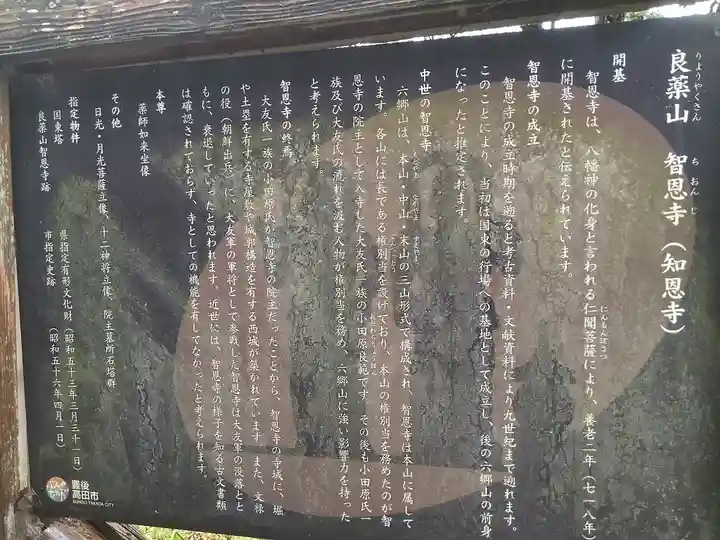 りょうやくさん ちおんじ
良薬山 智恩寺（知恩寺）
開基
智恩寺は、八幡神の化身と言われる仁聞菩薩により、養老二年（七一八年）
にんもんぼさつ
に開基されたと伝えられています。
智恩寺の成立
智恩寺の成立時期を遡ると考古資料・文献資料により九世紀まで遡れます。
このことにより、当初は国東の行場への基地として成立し、後の六郷山の前身
になったと推定されます。
中世の智恩寺
六郷山は、本山・中山・末山の三山形式で構成され、智恩寺は本山に属して
います。各山には長である権別当を設けており、本山の権別当を務めたのが智
恩寺の院主として入寺した大友氏一族の小田原良範です。その後も小田原氏一
族及び大友氏の流れを汲む人物が権別当を務め、六郷山に強い影響力を持った
と考えられます。
智恩寺の終焉
大友氏一族の小田原氏が智恩寺の院主だったことから、智恩寺の寺域に、堀
や土塁を有する寺屋敷や城郭構造を有する西城が築かれています。また、文禄
の役（朝鮮出兵）に、大友軍の軍将として参戦した智恩寺は大友軍の没落とと
もに、衰退していったと思われます。近世には、智恩寺の様子を知る古文書類
は確認されておらず、寺としての機能を有してなかったと考えられます。
本尊
薬師如来坐像
その他
日光・月光菩薩立像、十二神将立像、院主墓所石塔群
指定物件
国東塔 県指定有形文化財（昭和五十三年三月三十一日）
良薬山智恩寺跡 市指定史跡（昭和五十六年四月一日）
豊後
高田市
BUNGO TAKADA CITY